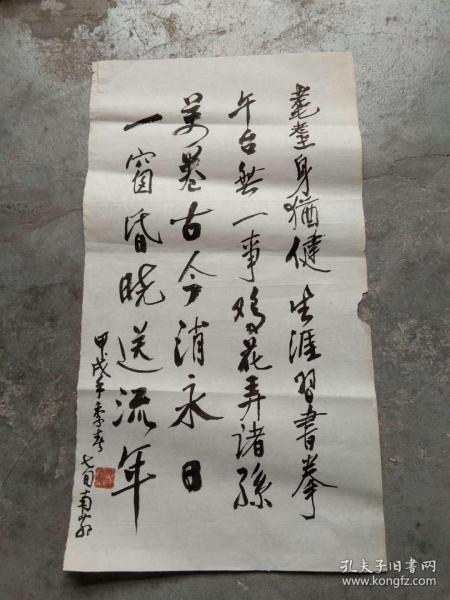 耄耋身猶健生涯習書拳
午台無一事鸡花弄諸孫
萬卷古今消永日
一窗昏曉送流年
甲戌年季春
七旬南
孔夫子旧书网
www.kongfz.com